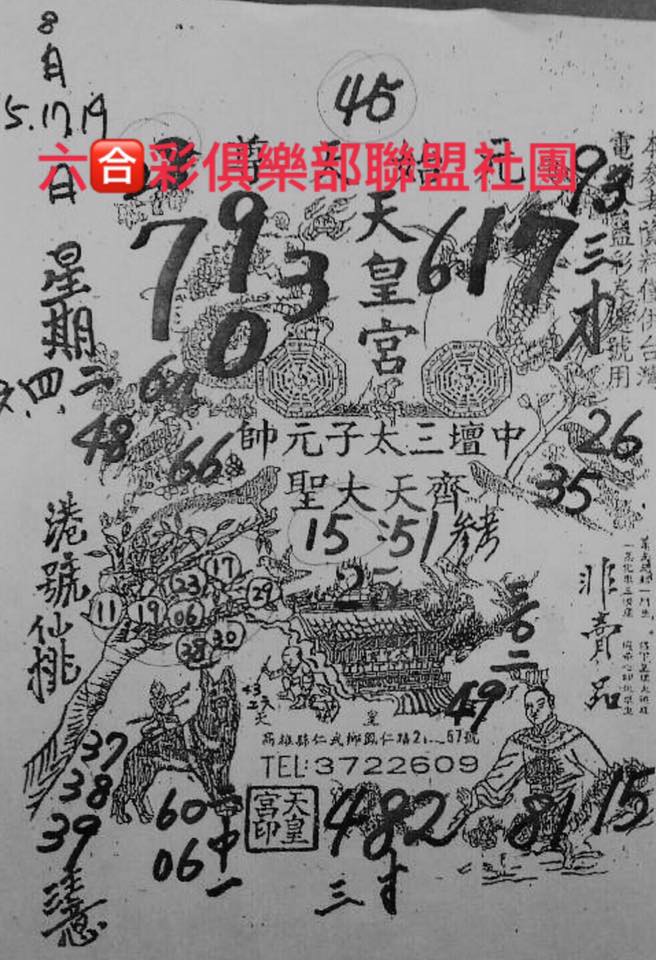 8
月
5.17.19
日
45
六合彩俱樂部聯盟社團
元始天尊
93
三才
天皇宮
7 9 3
0
617
星期
六.四.二
64
48
66
26
35
中壇三太子元帥
齊天大聖
15 51 參考
25
港號仙桃
17
23
29
11 19 06
38 30
非賣品
49
天皇
高雄縣仁武鄉鳳仁路21-57號
TEL:3722609
37
38
39
注意
60
06
二中一
天皇宮印
482
三才
81
15